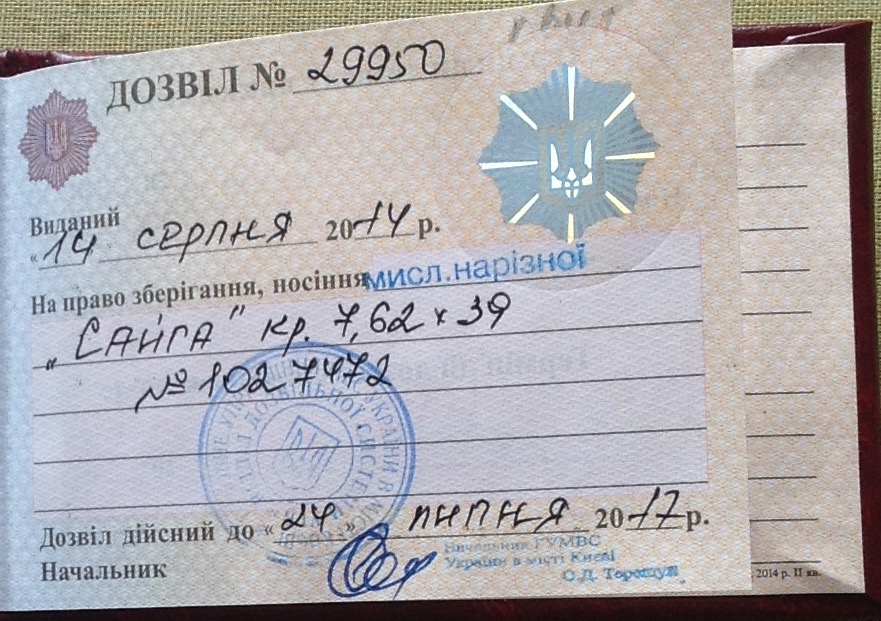 ДОЗВІЛ № 29950
Виданий
"14 серпня 2014 р.
На право зберігання, носіння мисл.нарізної
"Сайга" кр. 7,62 х 39
№ 1027472
Дозвіл дійсний до «24» липня 2017р.
Начальник
Начальник ГУМВС
України в місті Києві
О.Д. Терещук
2014 р. II кв.